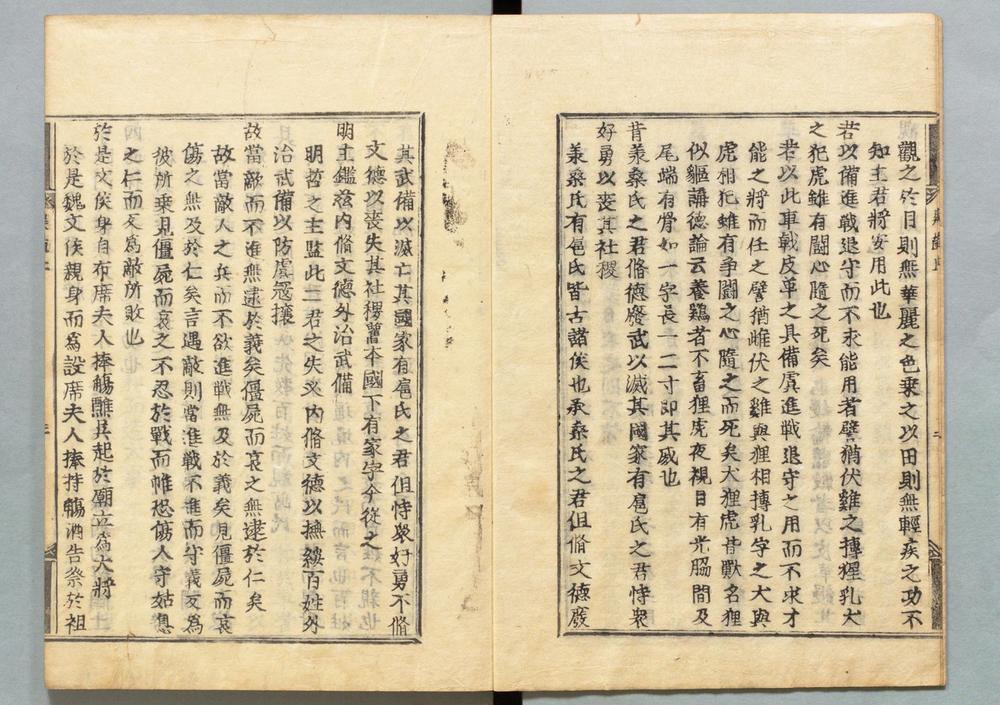 觀之於目則無華麗之色乗之以田則無輕疾之功不
知主君將安用此也
若以備進戰退守而不求能用者譬猶伏雞之搏狸乳犬
之犯虎雖有闘心隨之死矣
若以此車戟皮革之具備虞進戰退守之用而不求才
能之將而任之譬猶雌伏之雞與狸相搏乳字之犬與
虎相犯雖有争闘之心隨之而死矣犬狸虎皆獸名狸
似貙講德論云養鶏者不畜狸虎夜視目有光脇間及
尾端有骨如一字長一二寸即其威也
昔羕桑氏之君脩德廢武以滅其國家有扈氏之君恃衆
好勇以丧其社稷
羕桑氏有扈氏皆古諸侯也承桑氏之君但脩文德廢
其武備以滅亡其國家有扈氏之君但恃衆好勇不脩
文德以丧失其社稷舊本國下有家字今從之
明主鑑玆内脩文德外治武備
明哲之主監此二君之失必内脩文德以撫綏百姓外
治武備以防虞冦攘
故當敵而不進無逮於義矣僵屍而哀之無逮於仁矣
故當敵人之兵而不欲進戦無及於義矣見僵屍而哀
傷之無及於仁矣言遇敵則當進戰不進而守義反爲
彼所乗見僵屍而哀之不忍於戰而惟恐傷人守姑息
之仁而反爲敵所敗也
於是文侯身自布席夫人捧觴醮吴起於廟立爲大將
於是魏文侯親身而爲設席夫人捧持觴酒告祭於祖